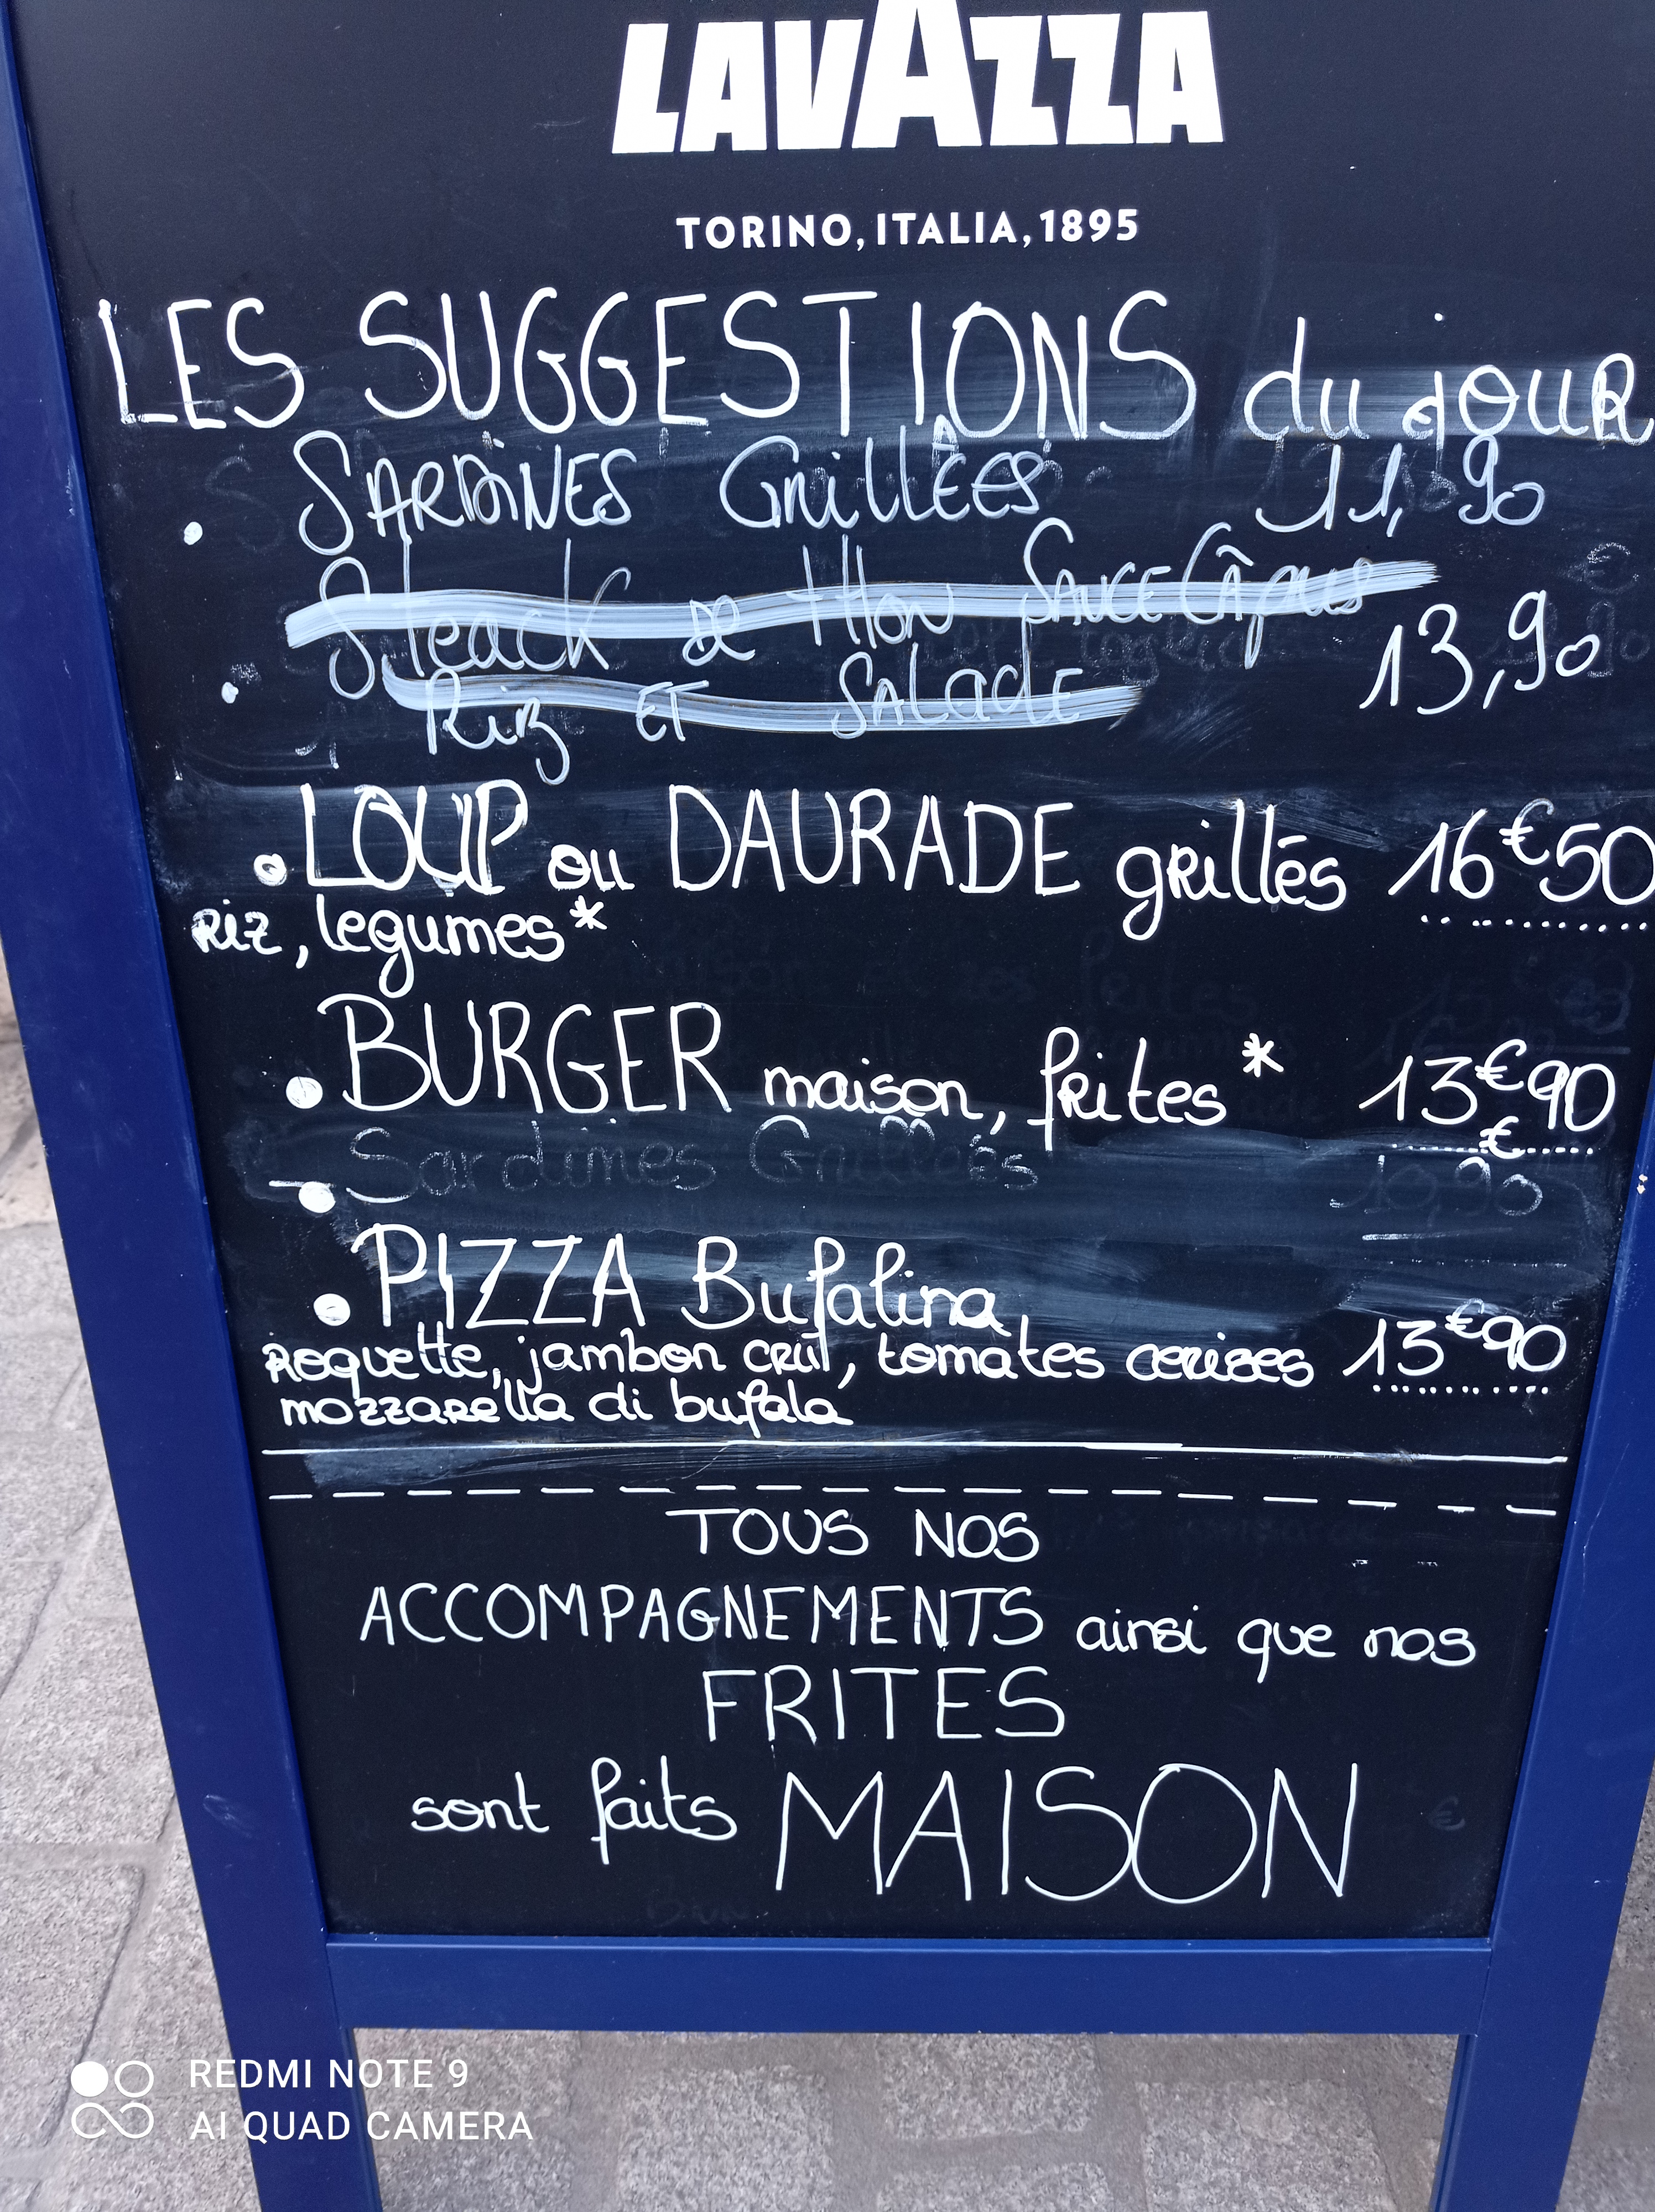 LAVAZZA
TORINO, ITALIA, 1895
LES SUGGESTIONS du jOUR
• SARDINES GrillÉES 11,90
Steack de tHon SAUCE CÂpres
• Riz ET SALAdE 13,90
• LOUP ou DAURADE grillés 16€50
Riz, legumes*
• BURGER maison, frites* 13€90
€
• Sardines Grillées 10,90
• PIZZA Bufalina,
Roquette, jambon crût, tomates cerises 13€90
mozzarella di bufala
TOUS NOS
ACCOMPAGNEMENTS ainsi que nos
FRITES
sont faits MAISON
REDMI NOTE 9
AI QUAD CAMERA